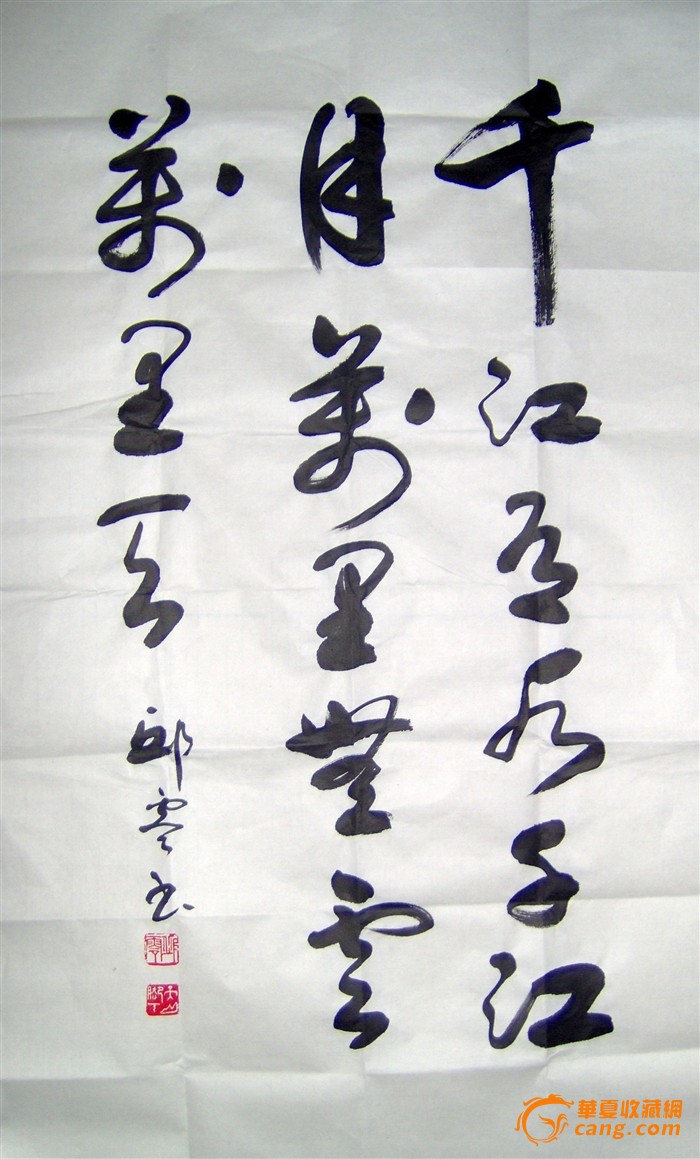 千江有水千江
月萬里無雲
萬里天
邱零书
華夏收藏網
cang.com